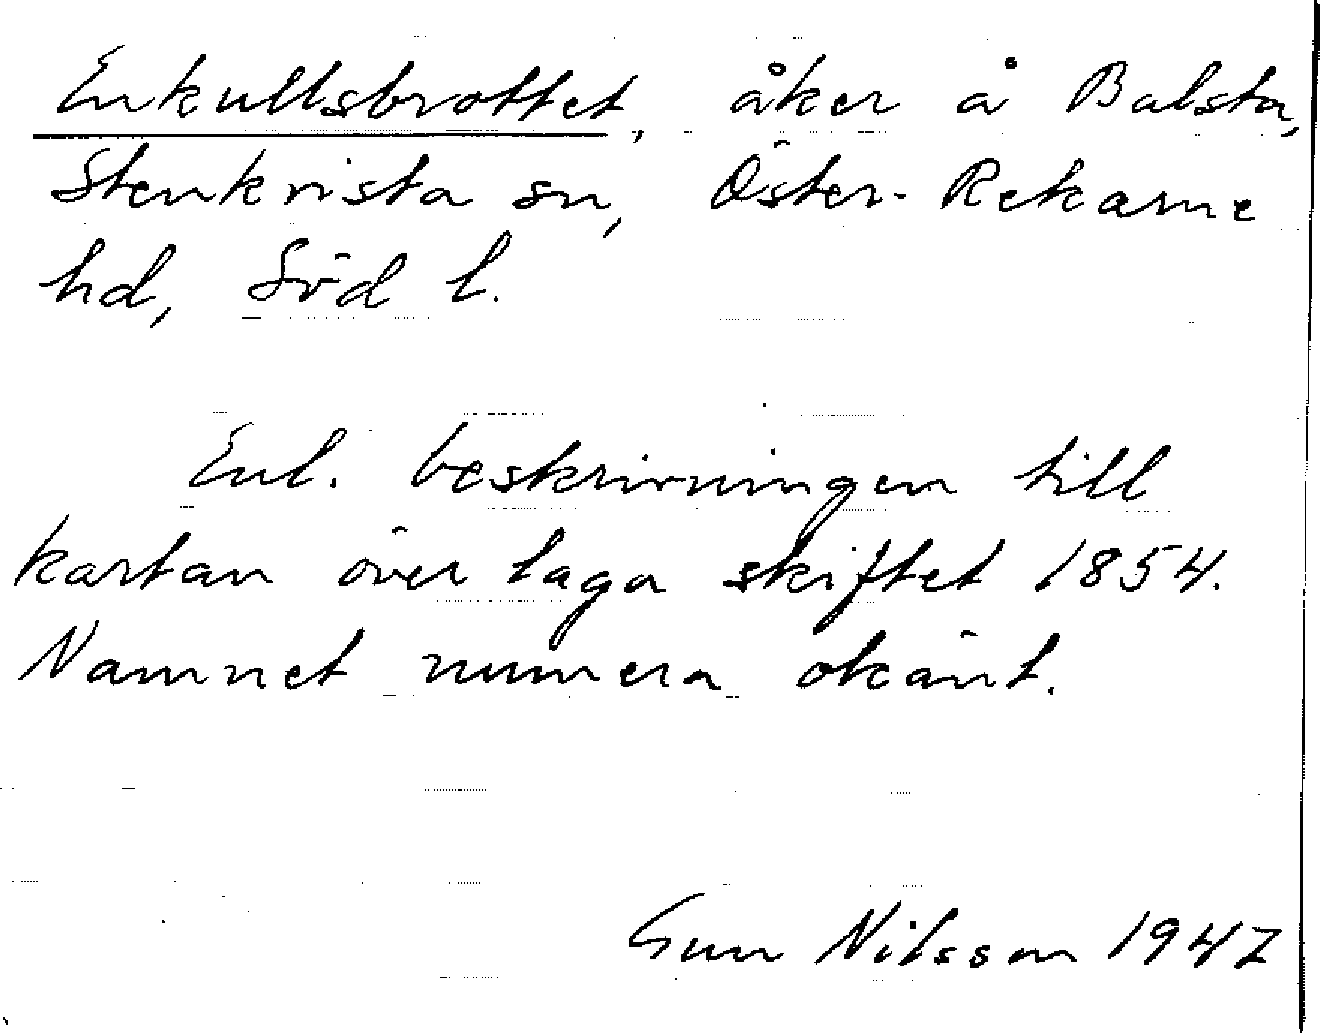 Enkullsbrottet, åker å Balsta,
Stenkvista sn, Öster-Rekarne
hd, Söd l.
Enl. beskrivningen till
kartan över laga skiftet 1854.
Namnet numera okänt.
Gun Nilsson 1947